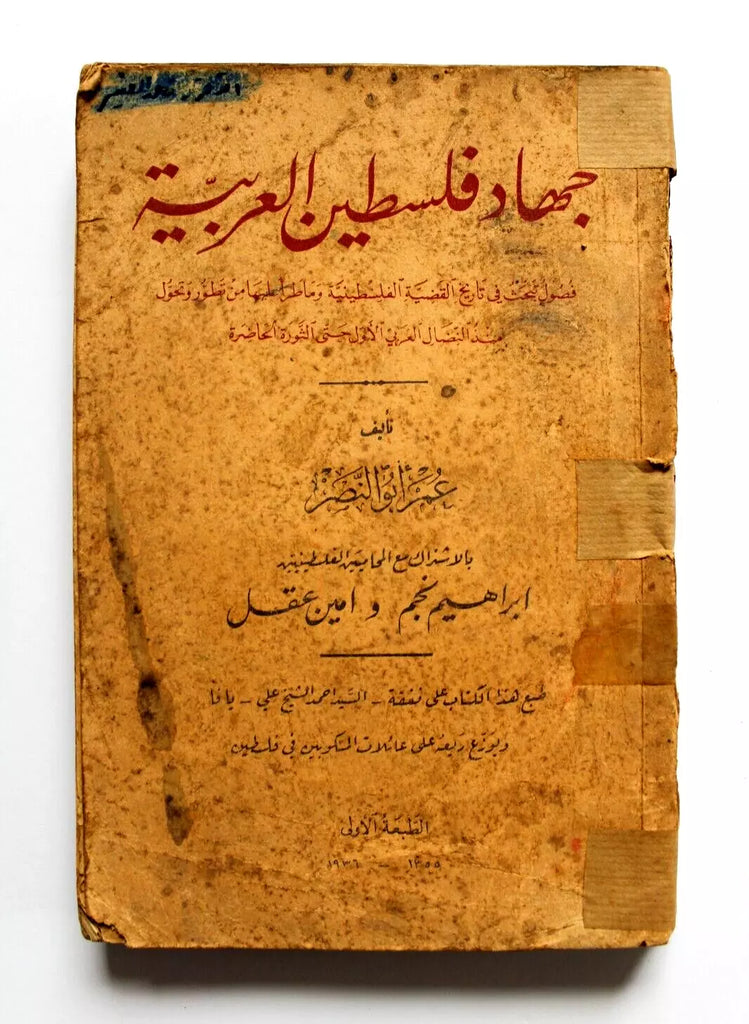 جهاد فلسطين العربيّة
فصُول تبحث في تاريخ القضيَّة الفلسطينيَّة وَمَا طرَأ عليهَا من تطوّر وَتحوّل
منذ النضال العربي الأول حتى الثورة الحاضرة
تأليف
عُمَر أبُو النَّصْر
بالاشتراك مع المحاميين الفلسطينيين
ابراهيم نجم و امين عقل
طبع هذا الكتاب على نفقة - السيد احمد الشيخ علي - يافا
ويوزّع ريعه على عائلات المنكوبين في فلسطين
الطبعة الأولى
١٣٥٥ - ١٩٣٦